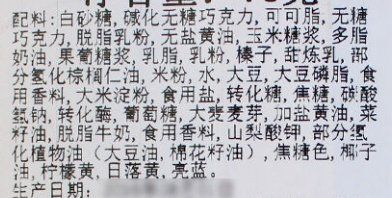 配料:白砂糖,碱化无糖巧克力,可可脂,无糖
巧克力,脱脂乳粉,无盐黄油,玉米糖浆,多脂
奶油,果葡糖浆,乳脂,乳粉,榛子,甜炼乳,部
分氢化棕榈仁油,米粉,水,大豆,大豆磷脂,食
用香料,大米淀粉,食用盐,转化糖,焦糖,碳酸
氢钠,转化酶,葡萄糖,大麦麦芽,加盐黄油,菜
籽油,脱脂牛奶,食用香料,山梨酸钾,部分氢
化植物油(大豆油,棉花籽油),焦糖色,椰子
油,柠檬黄,日落黄,亮蓝。
生产日期: